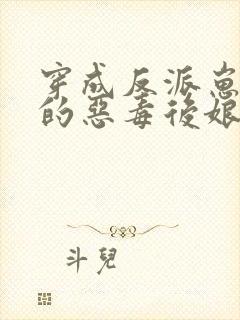 穿成反派崽
的惡毒後娘
斗兒